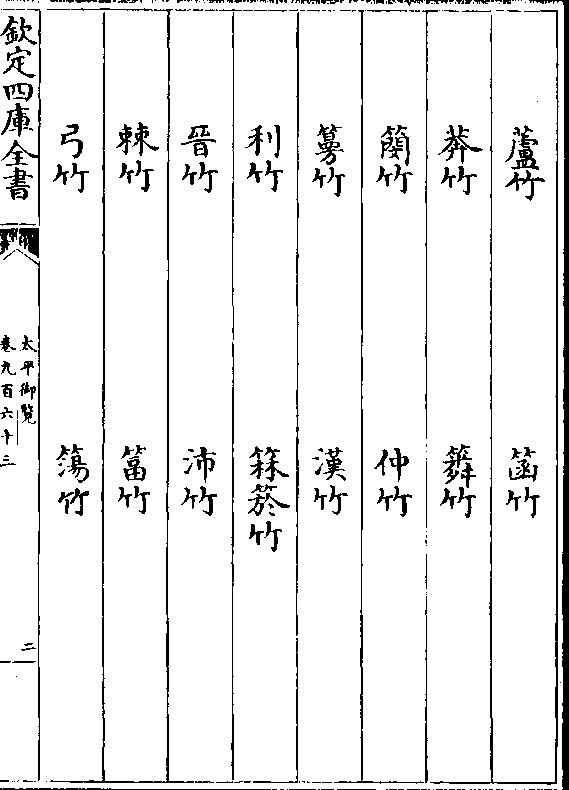 蘆竹　箘竹
莽竹　竹
竹　仲竹
篣竹　漢竹
利竹　箖箊竹
晉竹　沛竹
棘竹　竹
弓竹　簜竹
欽定四庫全書
太平御覽
卷九百六十三
二